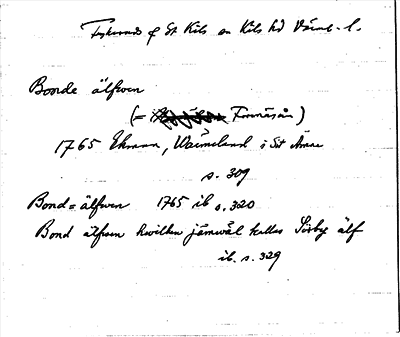 f St Kils sn Kils hd Värml. l.
Bonde älfwen
(= Finnåsån)
1765 Ekman, Wärmeland i Sit Ämne
s. 309
Bond=älfwen 1765 ib s. 320
Bond älfwen hwilken jämwäl kallas Sörby älf
ib. s. 329